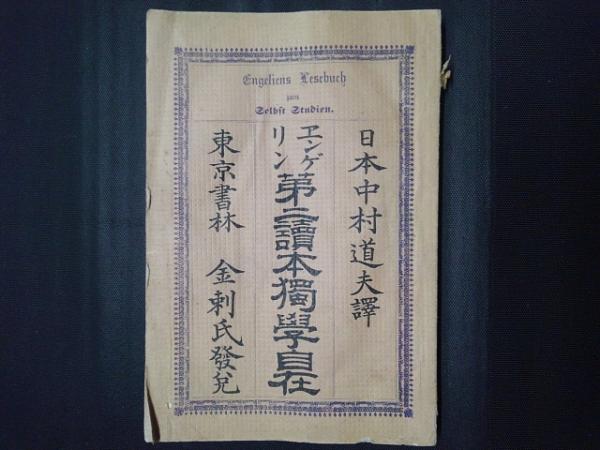 Engeliens Lesebuch
zum
Selbst Studien.
日本中村道夫譯
ヱンゲリン
第二讀本獨學自在
東京書林 金刺氏發兌